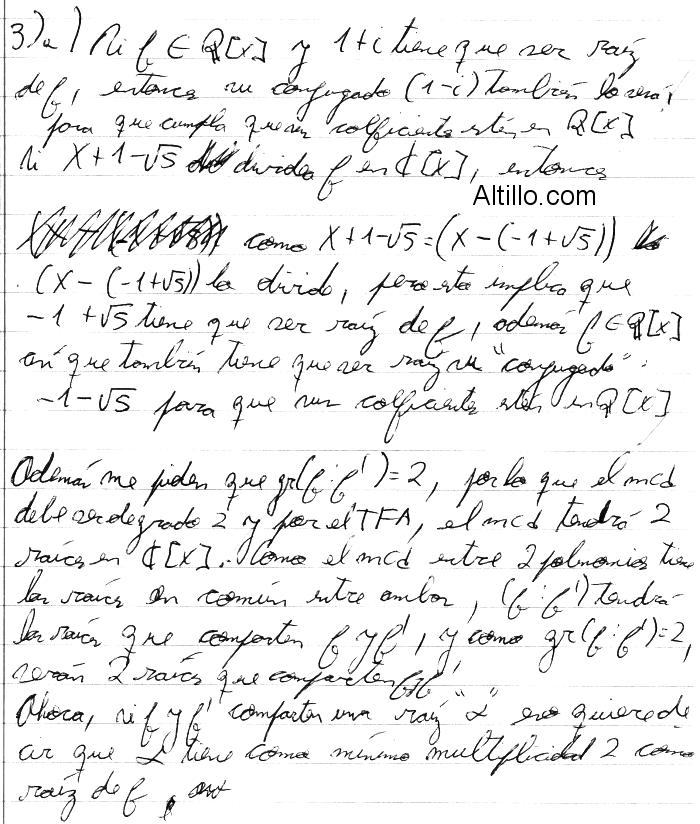 3)a) Si f ∈ Q[X] y 1+i tiene que ser raíz
de f, entonces su conjugado (1-i) también lo será,
para que cumpla que sus coeficientes estén en Q[X]
si X+1-√5 divide a f en ℂ[X], entonces
Altillo.com
como X+1-√5=(X-(-1+√5))
(X-(-1+√5)) lo divide, pero esto implica que
-1+√5 tiene que ser raíz de f, además f∈Q[X]
así que también tiene que ser raíz su "conjugado"
-1-√5 para que sus coeficientes estén en Q[X]
Además me piden que gr(f:f')=2, por lo que el mcd
debe ser de grado 2 y por el TFA, el mcd tendrá 2
raíces en ℂ[X]. Como el mcd entre 2 polinomios tiene
las raíces en común entre ambos, (f:f') tendrá
las raíces que comparten f y f', y como gr(f:f')=2,
serán 2 raíces que comparten f y f'
Ahora, si f y f' comparten una raíz "α" eso quiere de
cir que α tiene como mínimo multiplicidad 2 como
raíz de f,